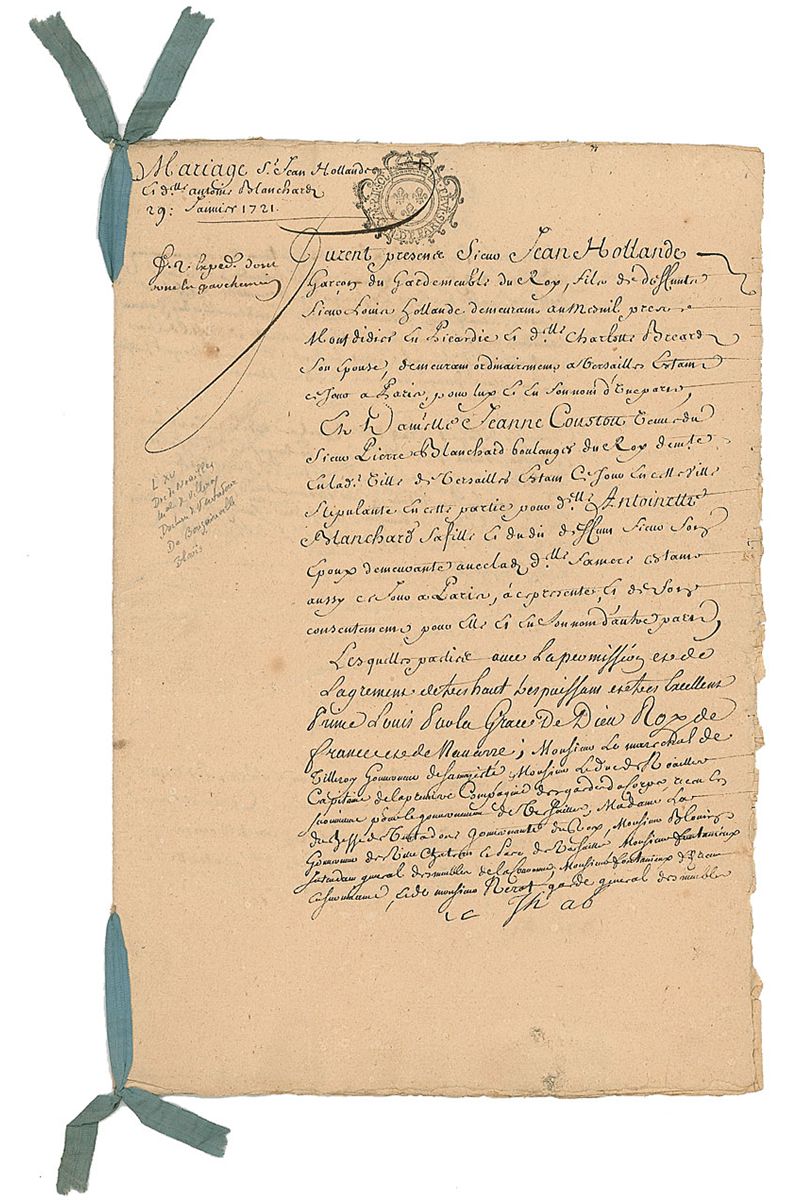 Mariage Sr. Jean Hollande
et dlle antoine Blanchard
29: Janvier 1721.
f. 2. exped. dont
une en parchemin
Furent presens Sieur Jean Hollande
Garçon du Gardemeuble du Roy, fils de deffunts
Sieur Louis Hollande demeurant au Mesnil pres
Montdidier en Picardie et dlle Charlotte Breard
son Epouse, demeurant ordinairement a Versailles Estant
ce Jour a Paris, pour luy et en son nom d'une part,
Et Damlle Jeanne Coustou veuve du
Sieur Pierre Blanchard boulanger du Roy demte
en lad. Ville de Versailles Estant ce Jour en cette ville
stipulante en cette partie pour dlle Antoinette
Blanchard sa fille et dudit deffunt Sieur son
Epoux demeurante avec lad. dlle sa mere estant
aussy ce Jour a Paris, à ce presente, et de son
consentement pour elle et en son nom d'autre part,
Lesquelles parties avec la permission et de
Lagrement de tres haut tres puissant et tres Excellent
Prince Louis Par la Grace De Dieu Roy de
france et de Navarre; Monsieur Le marechal de
Villeroy Gouverneur de sa majesté Monsieur Le duc de Noailles
Capitaine de la premiere Compagnie des gardes du Corps,
pour le gouvernement de Versailles, Madame La
duchesse de Ventadour gouvernante du Roy, Monsieur Blouin
Gouverneur des Chateau et Parc de Versailles Monsieur fontanieux
Intendant general des meubles de la Couronne, Monsieur fontanieux
et de monsieur Nerot garde general des meubles
L XV
Duc de Noailles
mal de Villeroy
Duchesse de Ventadour
De Bougainville
Blouin